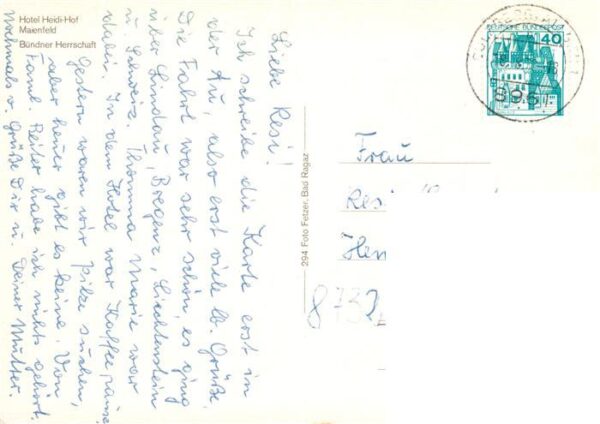 Hotel Heidi-Hof
Maienfeld
Bündner Herrschaft
Liebe Resi!
Ich schreibe die Karte erst in
der Au, also erst viele lb. Grüße.
Die Fahrt war sehr schön, es ging
über Lindau, Bregenz, Liechtenstein
u. Schweiz. Thomma Marie war
dabei. In dem Hotel war Kaffeepause.
Gestern waren wir Pilze suchen,
aber heuer gibt es keine. Von
Fam. Reiter habe ich nichts gehört.
Nochmals v. Grüße Dir u. Deiner Mutter.
294 Foto Fetzer, Bad Ragaz
DEUTSCHE BUNDESPOST
40
896
Frau
Resi
Hen
8732